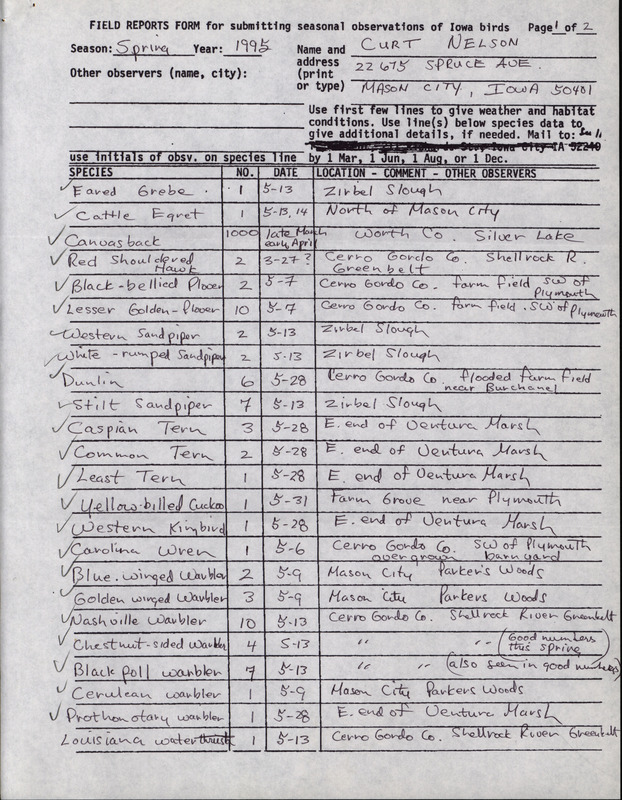 FIELD REPORTS FORM for submitting seasonal observations of Iowa birds Page 1 of 2
Season: Spring Year: 1995 Name and address (print or type) CURT NELSON
22675 SPRUCE AVE.
MASON CITY, IOWA 50401
Other observers (name, city):
Use first few lines to give weather and habitat
conditions. Use line(s) below species data to
give additional details, if needed. Mail to: See
Iowa City IA 52240
use initials of obsv. on species line by 1 Mar, 1 Jun, 1 Aug, or 1 Dec.
SPECIES NO. DATE LOCATION - COMMENT - OTHER OBSERVERS
✓ Eared Grebe . 1 5-13 Zirbel Slough
✓ Cattle Egret 1 5-13, 14 North of Mason City
✓ Canvasback 1000 late March early, April Worth Co. Silver Lake
✓ Red Shouldered Hawk 2 3-27? Cerro Gordo Co. Shellrock R. Greenbelt
✓ Black-bellied Plover 2 5-7 Cerro Gordo Co. farm field SW of Plymouth
✓ Lesser Golden-Plover 10 5-7 Cerro Gordo Co. farm field. SW of Plymouth
✓ Western Sandpiper 2 5-13 Zirbel Slough
✓ White-rumped Sandpiper 2 5-13 Zirbel Slough
✓ Dunlin 6 5-28 Cerro Gordo Co. flooded farm field near Burchanel
✓ Stilt Sandpiper 7 5-13 Zirbel Slough
✓ Caspian Tern 3 5-28 E. end of Ventura Marsh
✓ Common Tern 2 5-28 E. end of Ventura Marsh
✓ Least Tern 1 5-28 E. end of Ventura Marsh
✓ Yellow-billed Cuckoo 1 5-31 Farm Grove near Plymouth
✓ Western Kingbird 1 5-28 E. end of Ventura Marsh
✓ Carolina Wren 1 5-6 Cerro Gordo Co. SW of Plymouth overgrown barnyard
✓ Blue-winged Warbler 2 5-9 Mason City Parkers Woods
✓ Golden winged Warbler 3 5-9 Mason City Parkers Woods
✓ Nashville Warbler 10 5-13 Cerro Gordo Co. Shellrock River Greenbelt
✓ Chestnut-sided Warbler 4 5-13 " " (Good numbers this spring)
✓ Black poll warbler 7 5-13 " " (also seen in good numbers)
✓ Cerulean warbler 1 5-9 Mason City Parkers Woods
✓ Prothonotary warbler 1 5-28 E. end of Ventura Marsh
Louisiana waterthrush 1 5-13 Cerro Gordo Co. Shellrock River Greenbelt